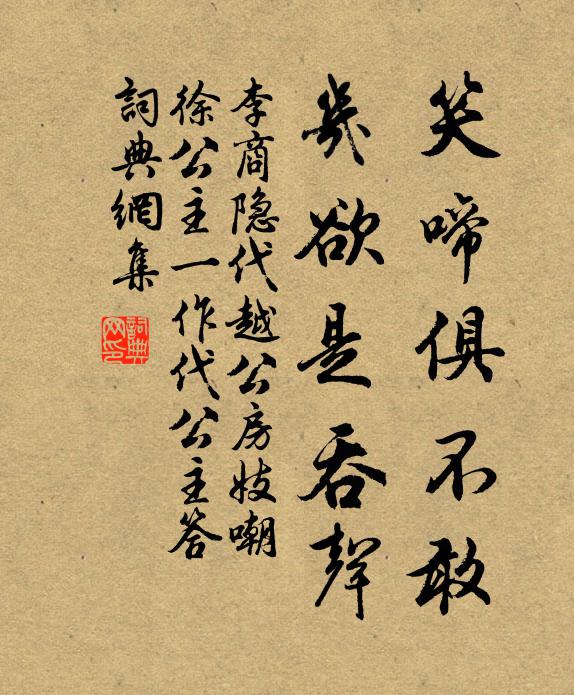 笑啼俱不敢
幾欲是吞聲
李商隐代越公房妓嘲
徐公主一作代公主答
詞典網集
詞典网印